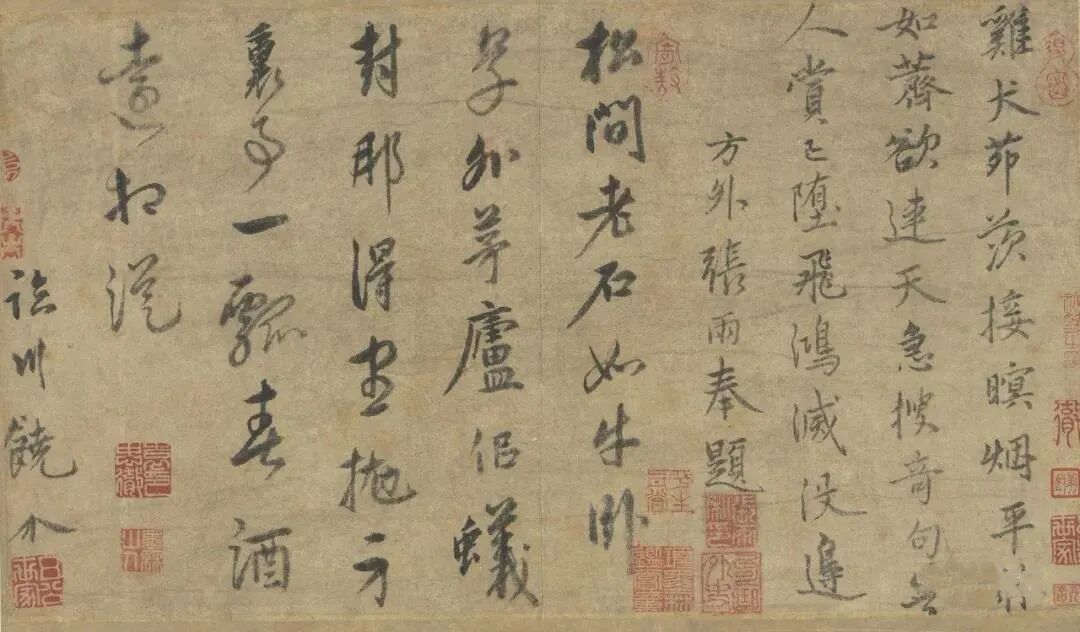 雞犬茆茨接暝烟平
如薺欲連天急搜奇句無
人賞已墮飛鴻滅沒邊
方外張雨奉題
松間老石如牛卧
草外茅廬佀蟻
封那得盡抛方
裏事一瓢春酒
遠相從
臨川饒介